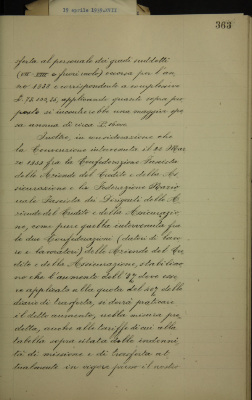 18 aprile 1939-XVII
363
sferta al personale dai gradi suddetti
(VII - XIII e fuori ruolo) invece per l'an-
no 1938 e corrispondente a complessive
£ 78.
posta si incontrerebbe una maggiore spe-
sa annua di circa
Inoltre, in considerazione che
la Convenzione intervenuta il 31 Mar
zo 1939 fra la Confederazione Fascista
delle Aziende del Credito e della As-
sicurazione e la Federazione Nazio
nale Fascista dei Dirigenti delle A-
ziende del Credito e della Assicurazio-
ne, come pure quella intervenuta fra
le due Confederazioni (datori di lavo
ro e lavoratori) delle Aziende del Cre
dito e della Assicurazione, stabilisco-
no che l'aumento dell' deve esse-
re applicato alla quota del delle
diarie di trasferta, si dovrà praticare
il detto aumento, nella misura pre-
detta, anche alle tariffe di cui alla
tabella sopra citata delle indenni-
tà di missione e di trasferta at-
tualmente in vigore presso il nostro